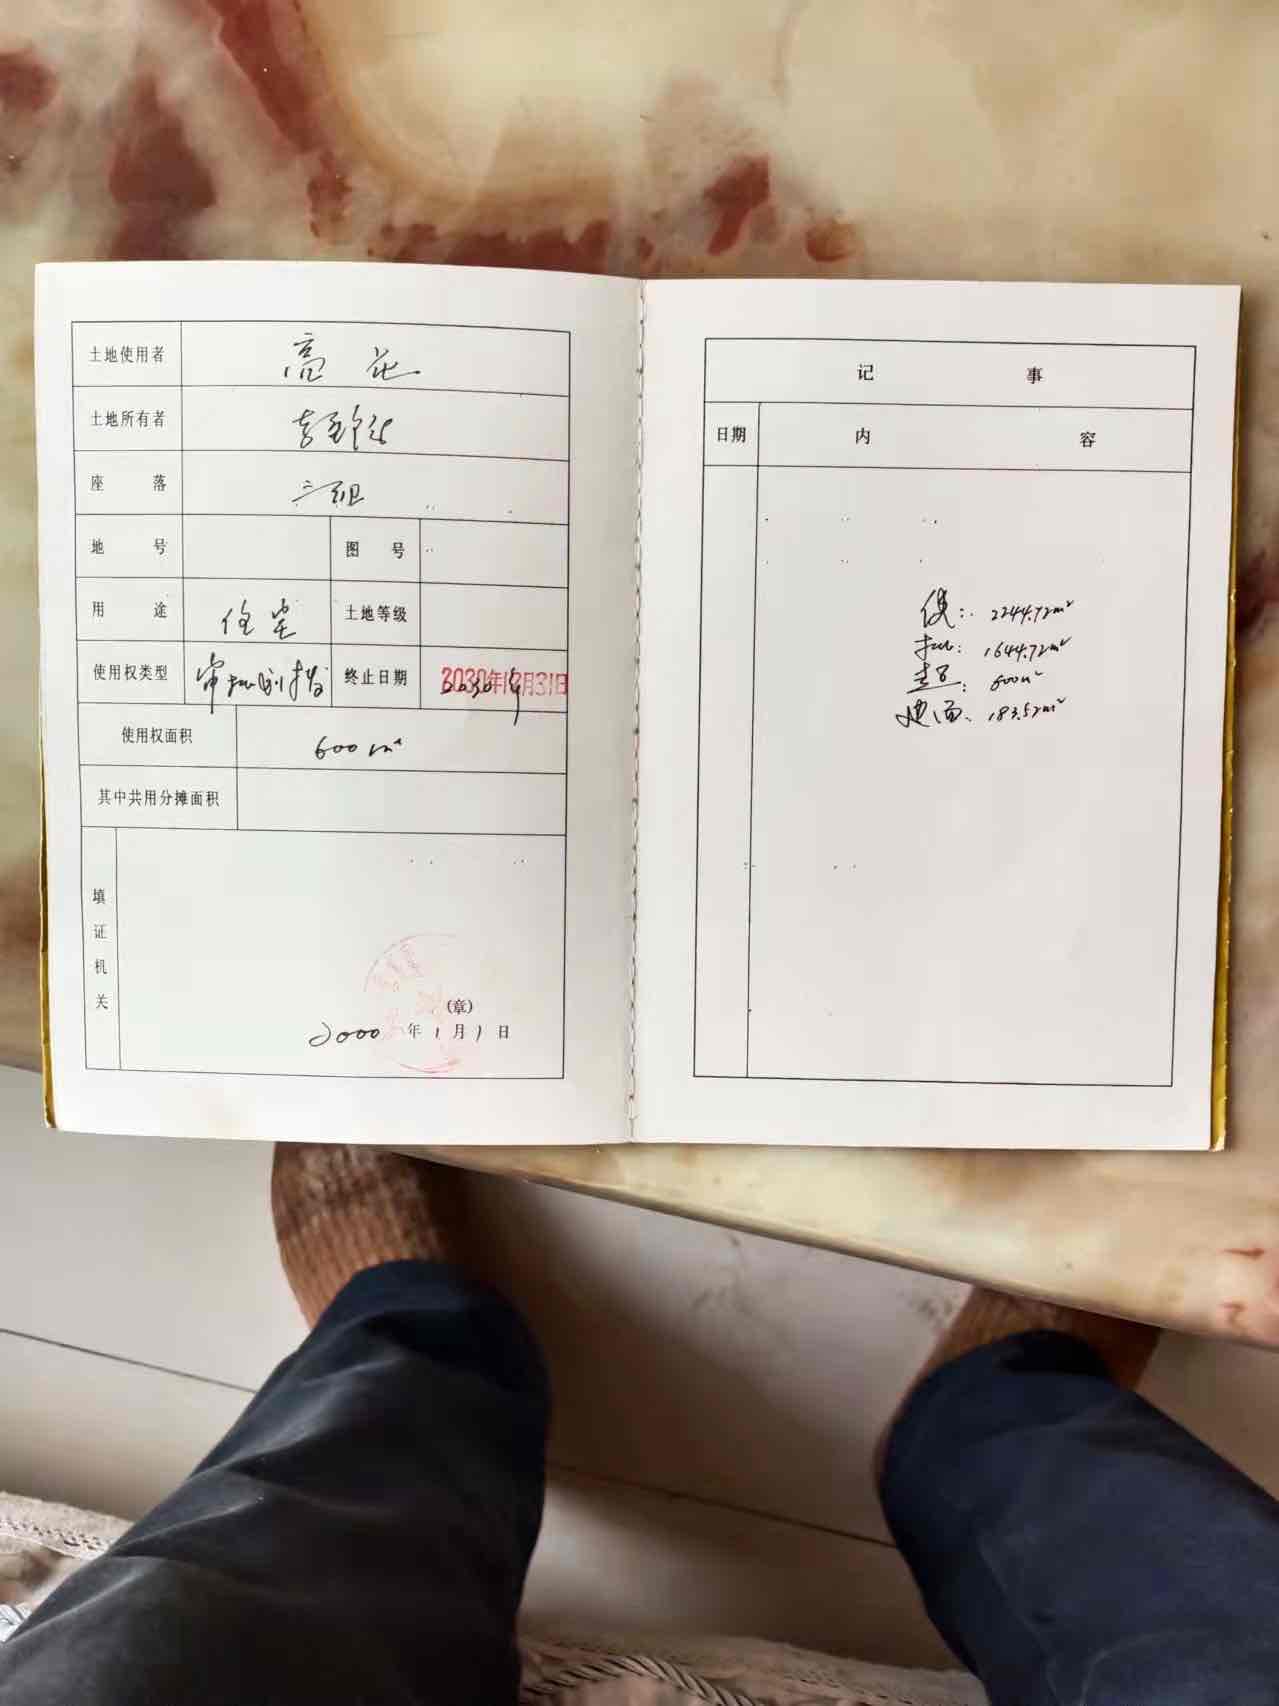 土地使用者 高花
土地所有者
座落 三组
地号 图号
用途 住宅 土地等级
使用权类型 审批划拨 终止日期 2030年12月31日
使用权面积 600m²
其中共用分摊面积
填证机关
(章)
2000年1月1日
记事
日期 内容
使: 2244.72m²
扣: 1644.72m²
: 600m²
建面: 183.52m²